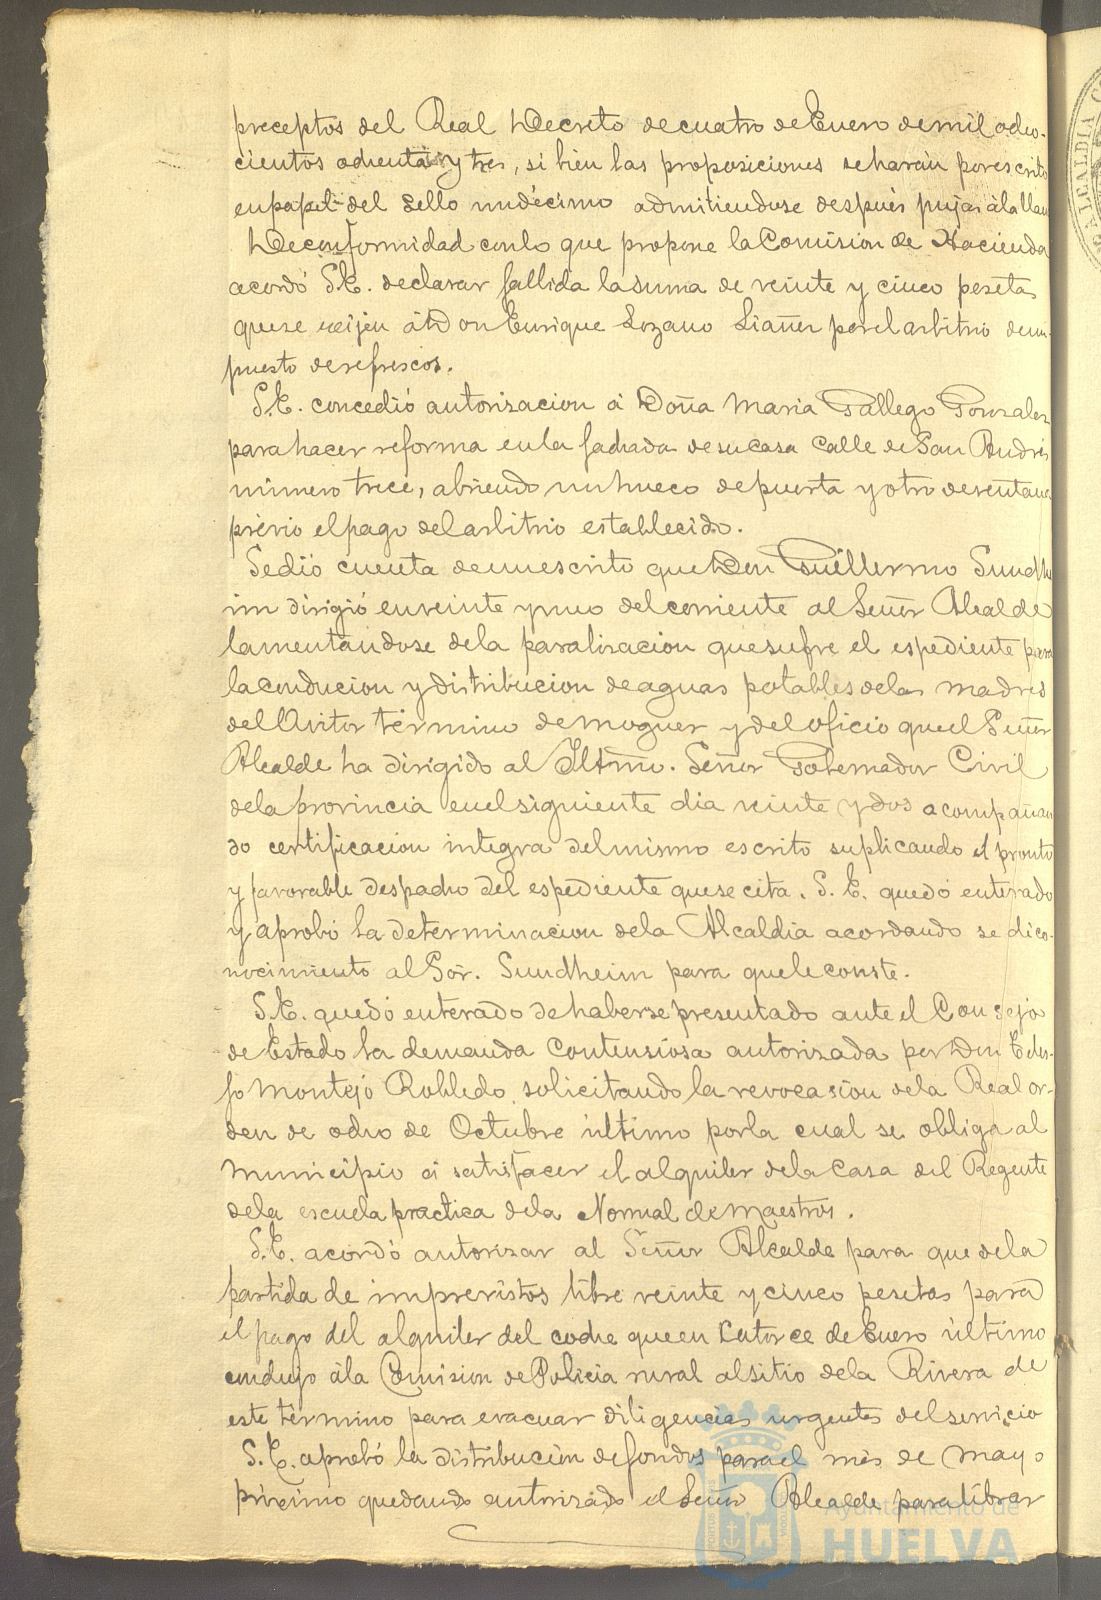 preceptos del Real Decreto de cuatro de Enero de mil ocho-
cientos ochenta y tres, si bien las proposiciones se harán por escrito
en papel del sello undécimo admitiendose después pujas á la llana
De conformidad con lo que propone la Comision de Hacienda
acordó S.E. declarar fallida la suma de veinte y cinco pesetas
que se exijen á Don Enrique Lozano Liañez por el arbitrio de un
puesto de refrescos.
S.E. concedió autorizacion á Doña Maria Gallego Gonzalez
para hacer reforma en la fachada de su casa calle de San Andrés
número trece, abriendo un hueco de puerta y otro de ventana
prévio el pago del arbitrio establecido.
Se dió cuenta de un escrito que Don Guillermo Sundhe
im dirigió en veinte y uno del corriente al Señor Alcalde
lamentandose de la paralizacion que sufre el espediente para
la conducion y distribucion de aguas potables de las madres
del Avitor término de Moguer y del oficio que el Señor
Alcalde ha dirigido al Iltmo. Señor Gobernador Civil
de la provincia en el siguiente dia veinte y dos acompañan
do certificacion integra del mismo escrito suplicando el pronto
y favorable despacho del espediente que se cita. S.E. quedó enterado
y aprobó la determinacion de la Alcaldia acordando se dé co-
nocimiento al Sor. Sundheim para que le conste.
S.E. quedó enterado de haberse presentado ante el Consejo
de Estado la demanda contensiosa autorizada por Don Teles-
fo Montejo Robledo, solicitando la revocasion de la Real or-
den de ocho de Octubre último por la cual se obliga al
Municipio á satisfacer el alquiler de la casa del Regente
de la escuela practica de la Normal de Maestros.
S.E. acordó autorizar al Señor Alcalde para que de la
partida de imprevistos libre veinte y cinco pesetas para
el pago del alquiler del coche que en catorce de Enero último
condujo á la Comision de Policia rural al sitio de la Rivera de
este término para evacuar diligencias urgentes del servicio
S.E. aprobó la distribución de fondos para el més de Mayo
próximo quedando autorizado el Señor Alcalde para librar
Ayuntamiento de
HUELVA
ALCALDIA CO